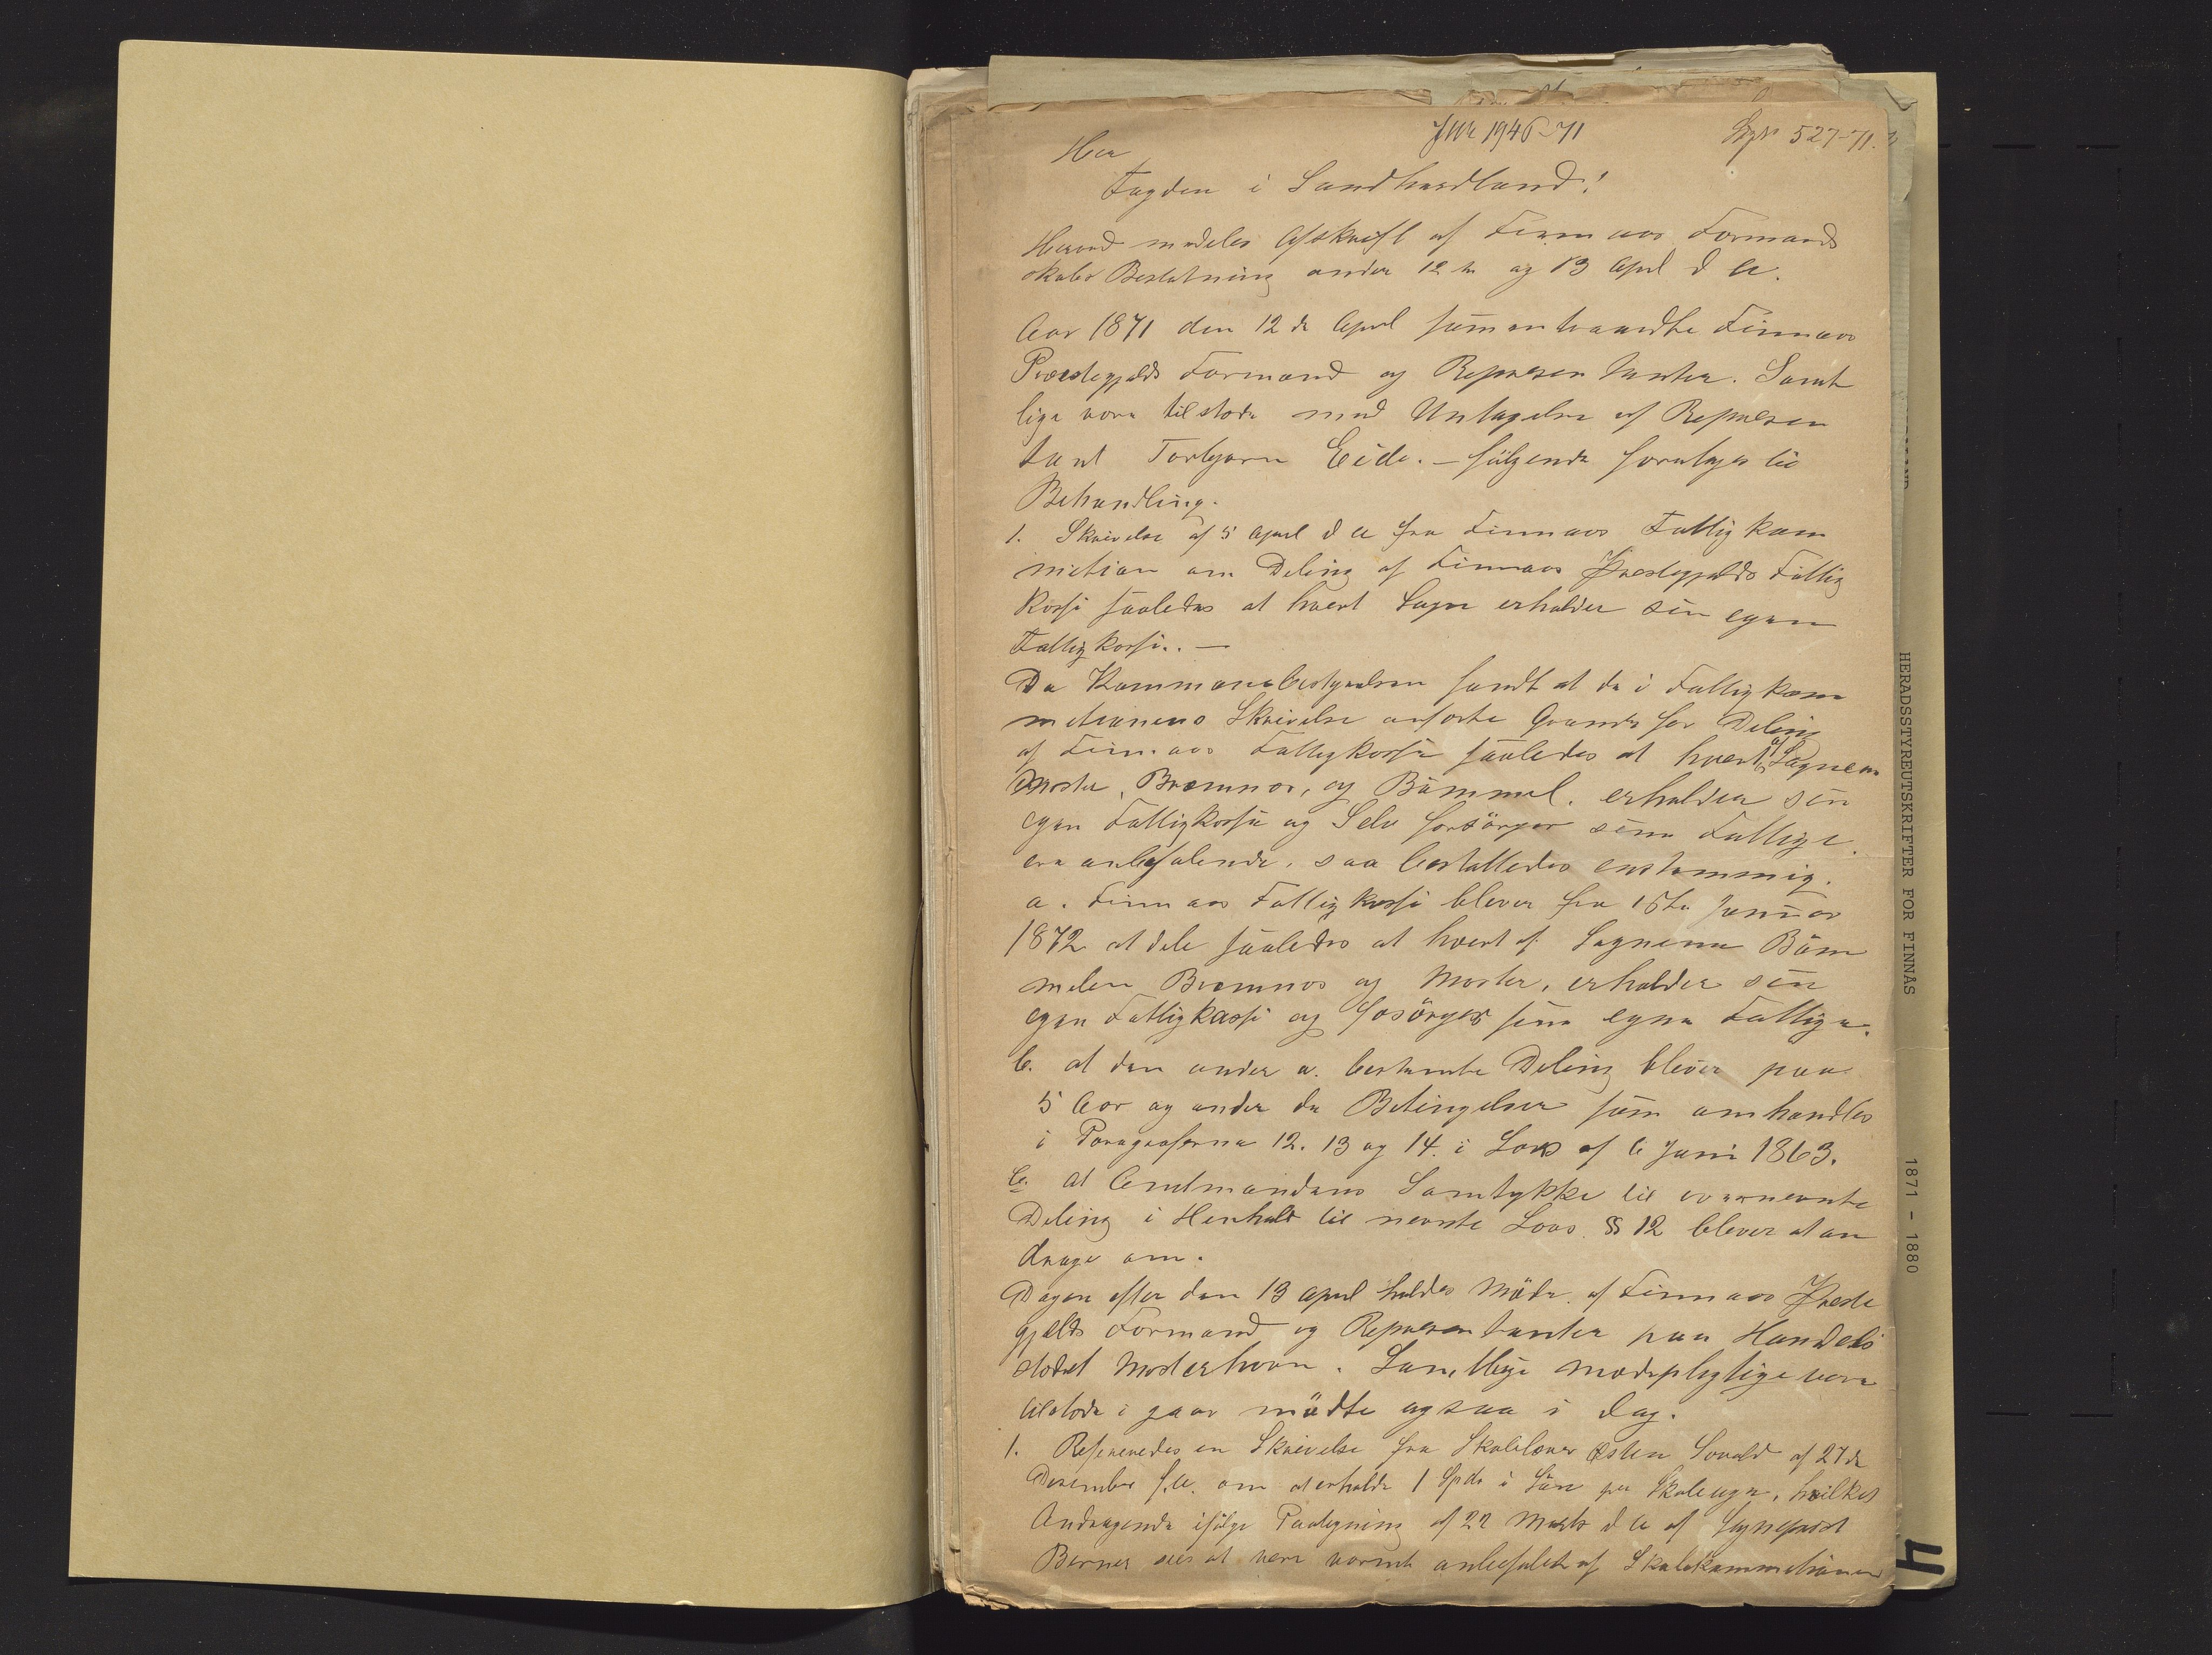 JNr 1946-71
527-71.
Herr
Fogden i Søndhordland!
Herved medeles Afskrift af Finnaas Formands
skabs Beslutning under 12te og 13 April d A.
Aar 1871 den 12te April sammentraadte Finnaas
Præstegjælds Formænd og Repræsentanter. Samt
lige vare tilstede med Untagelse af Repræsen
tant Torbjørn Eide. – følgende foretoges til
Behandling.
1. Skrivelse af 5 April d A fra Finnaas Fattigkom
mision om Deling af Finnaas Præstegjælds Fattig
kasse saaledes at hvert Sogn erholder sin egen
Fattigkasse. . —
Da Kommunebestyrelsen fandt at de i Fattigkom
metionens Skrivelse anførte Grunde for Deling
af Finnaas Fattigkasse saaledes at hvert af Sognene
Moster, Bræmnæs, og Bömmel. erholder sin
egen Fattigkasse og Selv forsörger sine Fattige.
ere anbefalende, saa besluttedes enstemmig.
a. Finnaas Fattigkasse bliver fra 1ste Januar
1872 at dele saaledes at hvert af Sognene Böm
melen Bremnes og Moster, erholder sin
egen Fattigkasse og fosörger sine egne Fattige.
b. at den under a. bestemte Deling bliver paa
5 Aar og under de Betingelser som omhandles
i Paragraferne 12. 13 og 14. i Lov af 6 Juni 1863.
c. at Amtmandens Samtykke til ovennevnte
Deling i Henhold til nevnte Lovs. § 12 bliver at an
drage om.
Dagen efter den 13 April holdes Möde af Finnaas Præste
gjælds Formænd og Repræsentanter paa Handels
stedet Mosterhavn. Samtlige mødepligtige vare
tilstede i gaar mödte ogsaa i dag.
1. Refereredes en Skrivelse fra Skolelærer Østen af 27de
Desember f.A. om at erholde 1 Spd i Lön per Skoleuge, hvilket
Andragende ifölge Paategning af 22 Marts d A af Sognepræst
Berner sees at være varmt anbefalet af Skolekommetionen
HERADSSTYREUTSKRIFTER FOR FINNÅS
1871 - 1880
4